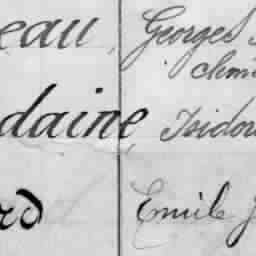 eau, Georges
daine Isidor
rd Emile J